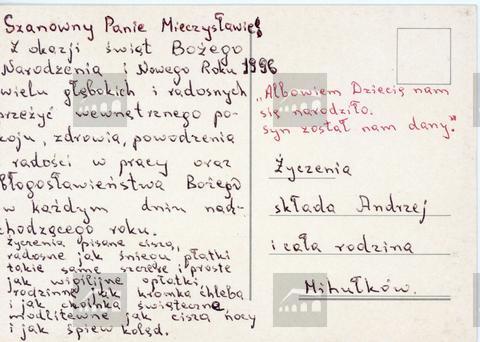 Szanowny Panie Mieczysławie!
Z okazji świąt Bożego
Narodzenia i Nowego Roku 1996
wielu głębokich i radosnych
przeżyć wewnętrznego po-
koju, zdrowia, powodzenia
i radości w pracy oraz
błogosławieństwa Bożego
w każdym dniu nad-
chodzącego roku.
Życzenia pisane ciszą,
radosne jak śniegu płatki
takie same szczere i proste
jak wigilijne opłatki
rodzinne jak kromka chleba
i jak choinka świąteczne
modlitewne jak cisza nocy
i jak śpiew kolęd.
"Albowiem Dziecię nam
się narodziło.
syn został nam dany."
Życzenia
składa Andrzej
i cała rodzina
Mihułków.